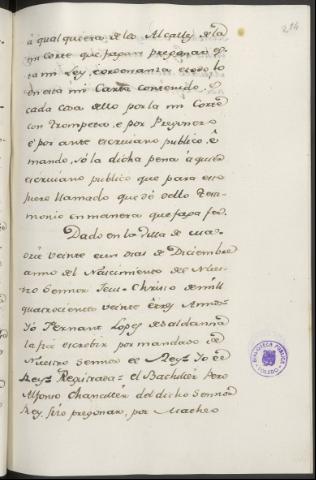 214
á qualquiera de los Alcalles de la
mi Corte que fagan pregonar es-
ta mi Ley, e ordenanza e todo lo
en esta mi Carta contenido, e
cada cosa dello por la mi Corte
con Trompeta, e por Pregonero
e por ante escrivano publico, e
mando, só la dicha pena á qualq.r
escrivano publico que para esto
fuere llamado que dé dello Tes-
monio en manera que faga feé.
Dado en la Villa de
veinte e un dias de Diciembre
anno del Nascimiento de Nues-
tro Sennor Jesu-Christo de mill
quatrocientos veinte e tres Annos-
Yo Fernant Lopez de Saldanna
la fiz escrebir por mandado de
Nuestro Sennor el Rey= Yo el
Rey= Registrada= el Bachiller Pero
Alfonso Chanciller del dicho Sennor
Rey, fizo pregonar, por Matheo
BIBLIOTECA PUBLICA
TOLEDO